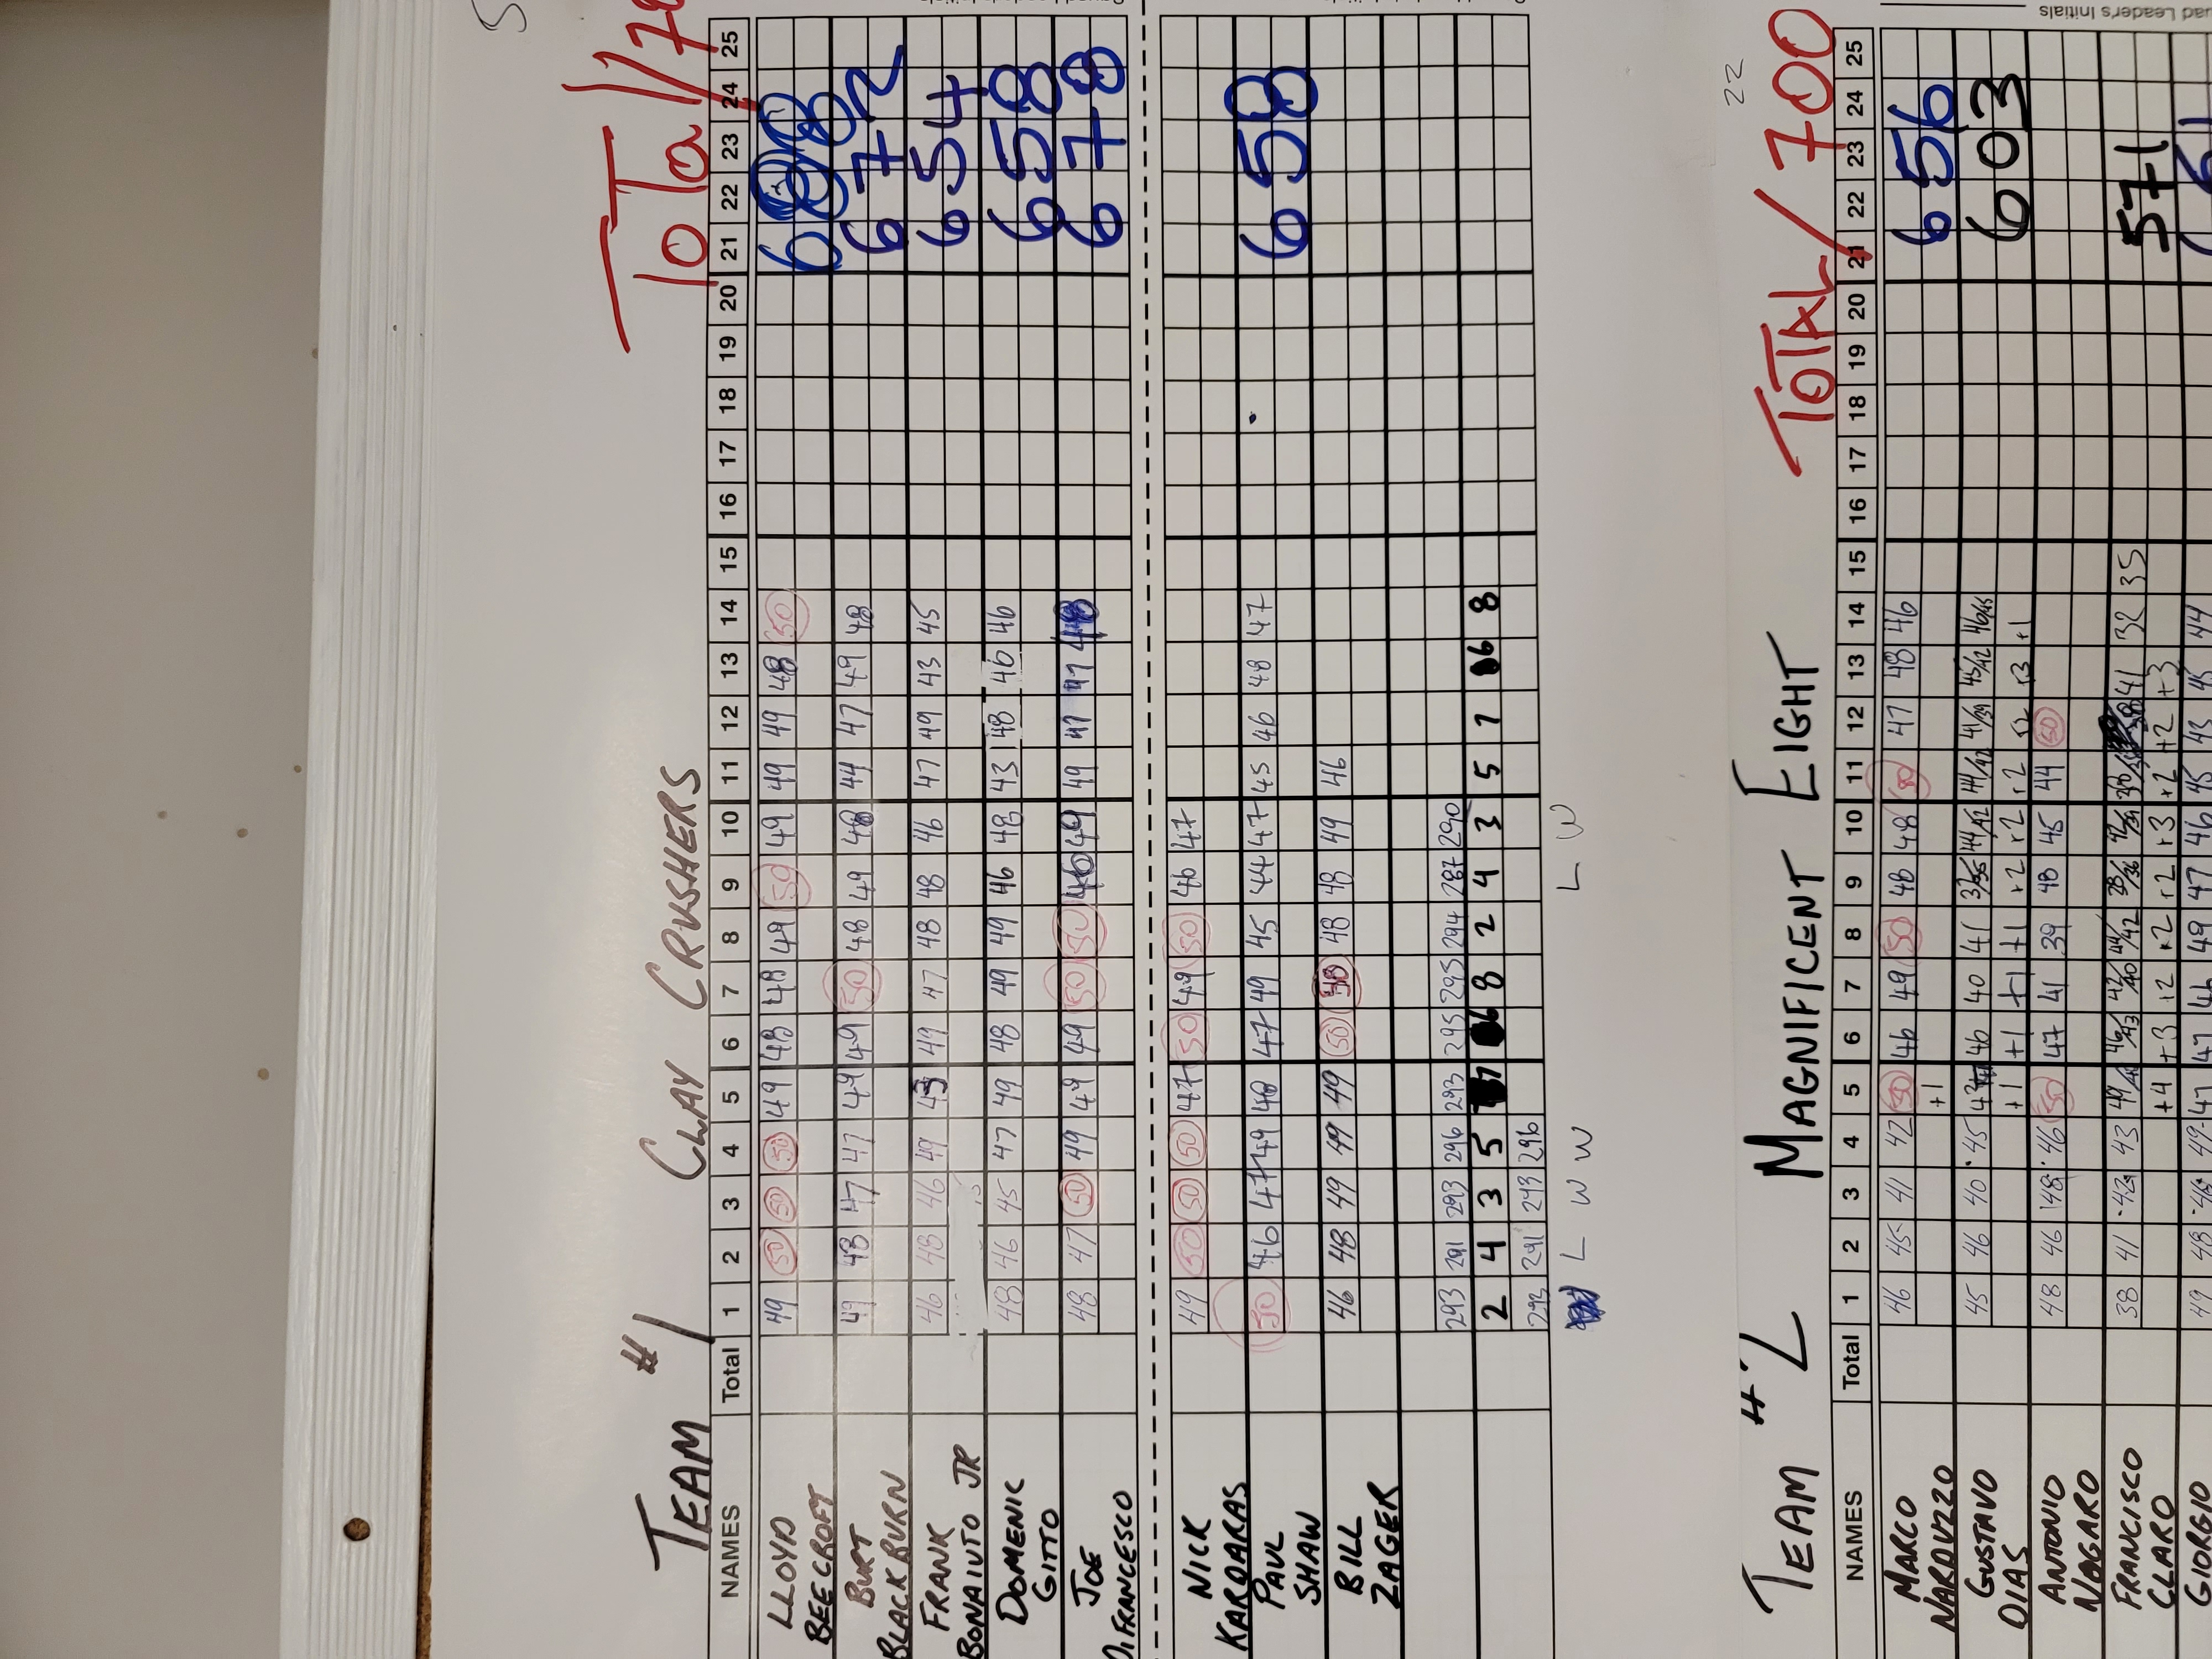 TEAM #1 CLAY CRUSHERS ToTal/70
NAMES Total 1 2 3 4 5 6 7 8 9 10 11 12 13 14 15 16 17 18 19 20 21 22 23 24 25
LLOYD BEECROFT 49 50 50 50 49 48 48 49 50 49 49 49 48 50
BURT BLACKBURN 49 48 47 47 49 49 50 48 49 48 44 47 49 48 672
FRANK BONAIUTO JR 46 48 46 49 43 49 47 48 48 46 47 49 43 45 654
DOMENIC GITTO 48 46 45 47 49 48 49 49 46 48 43 48 46 46 658
JOE DIFRANCESCO 48 47 50 49 49 49 50 50 46 49 49 47 47 48 678
NICK KARDARAS 49 50 50 50 47 50 49 50 46 47
PAUL SHAW 50 46 47 49 48 47 49 45 44 47 45 46 48 47 658
BILL ZAGER 46 48 49 49 49 50 50 48 48 49 46
293 291 293 296 293 295 295 294 287 290
2 4 3 5 8 2 4 3 5 7 6 8
293 291 293 296
L W W L W
22
TEAM #2 MAGNIFICENT EIGHT TOTAL/700
Squad Leader's Initials
NAMES Total 1 2 3 4 5 6 7 8 9 10 11 12 13 14 15 16 17 18 19 20 21 22 23 24 25
MARCO NARDUZZO 46 45 41 42 50 46 49 50 48 48 50 47 48 46 656
+1
GUSTAVO DIAS 45 46 40 45 46 40 41 603
+1 +1 +1 +1 +2 +2 +2 +3 +1
ANTONIO NOGARO 48 46 48 46 50 47 41 39 48 45 44 50
FRANCISCO CLARO 38 41 42 43 41 32 35 571
+4 +3 +2 +2 +2 +3 +2 +2 +3
GIORGIO 49 48 48 49 47 47 46 49 47 46 45 43 45 44